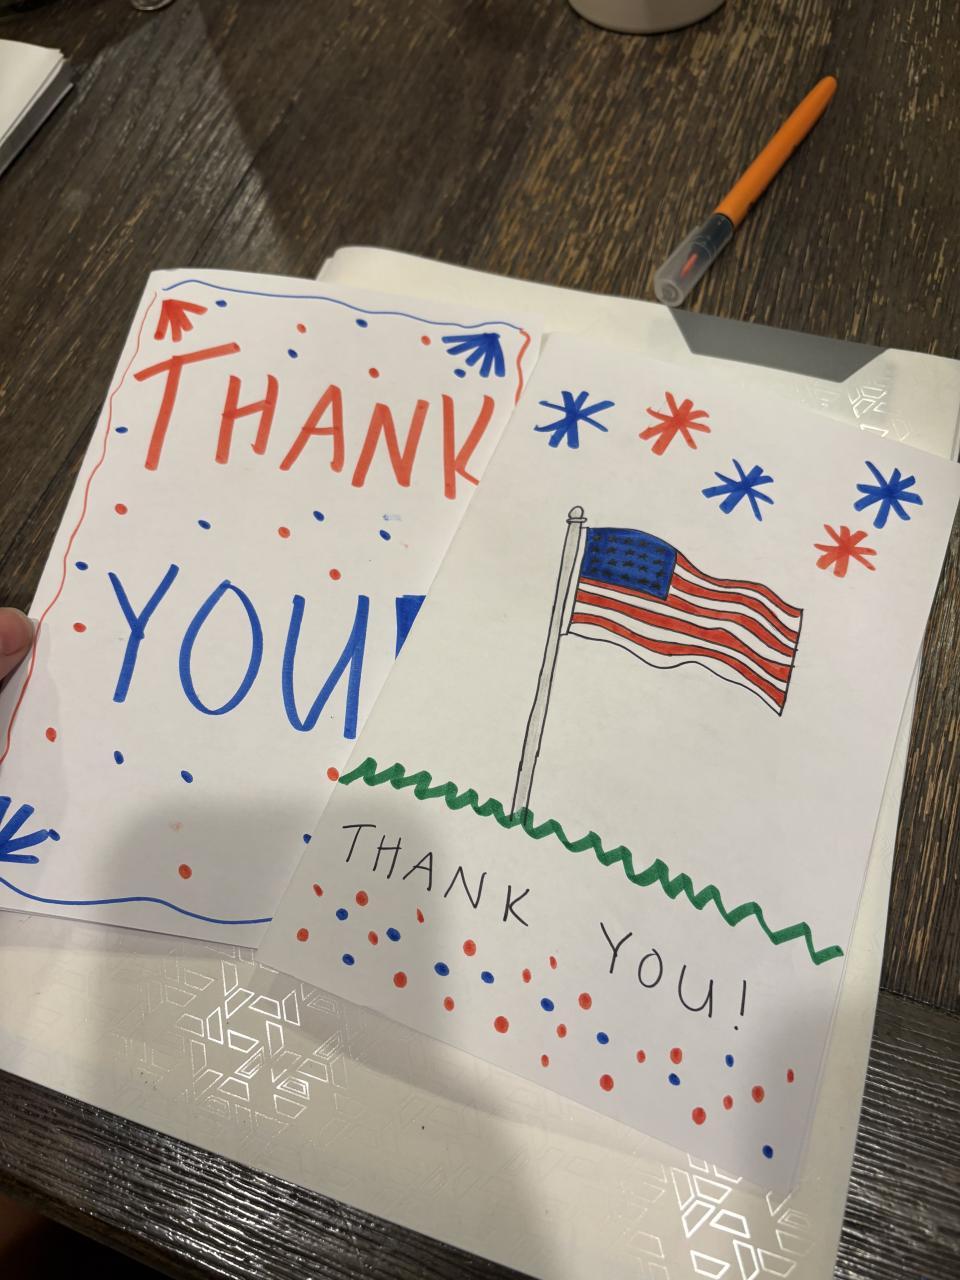 THANK
YOU!
THANK YOU!